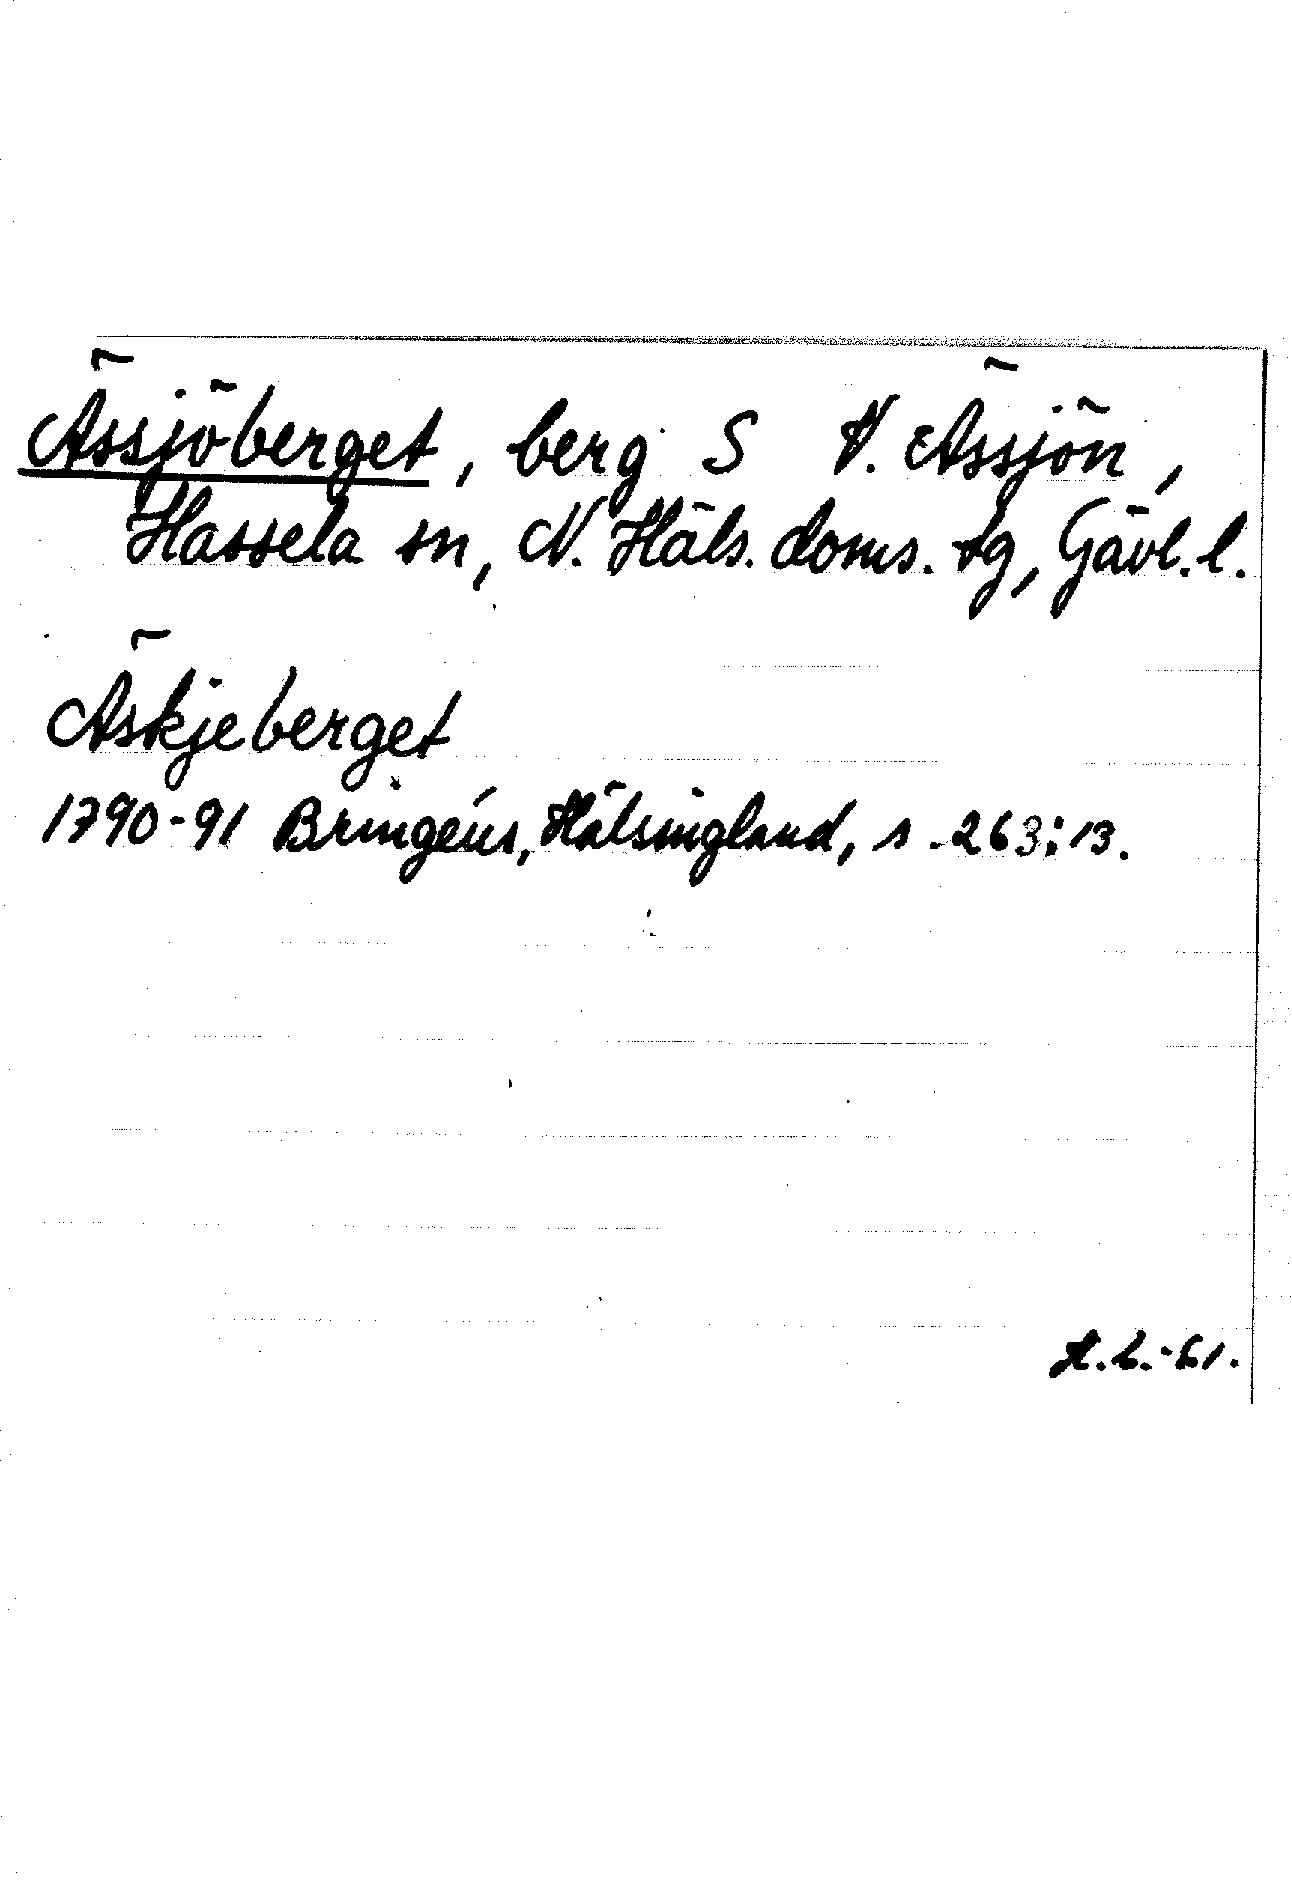 Ässjöberget, berg S N. Ässjön,
Hassela sn, N. Häls. doms. tg, Gävl. l.
Äskjeberget
1790-91 Bringéus, Hälsingland, s. 263:13.